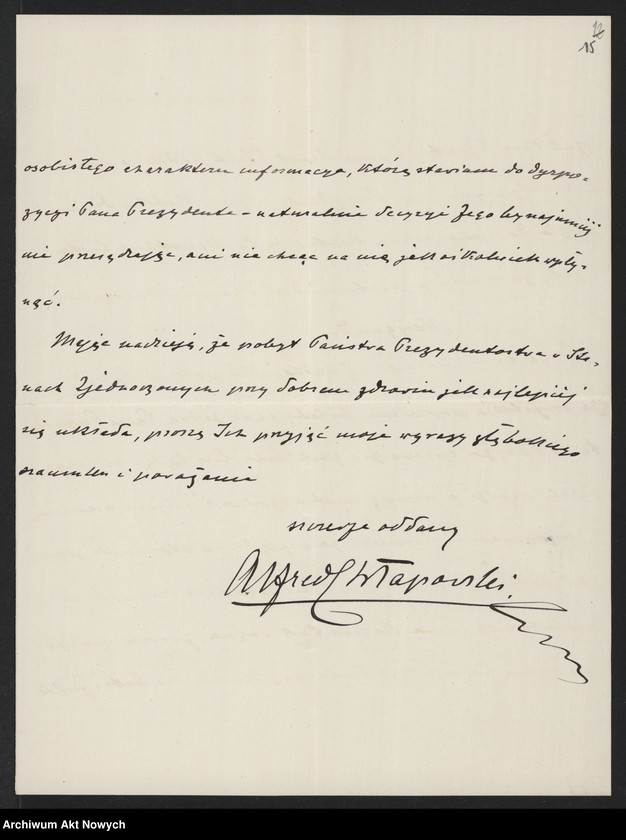 15
osobistego charakteru informacya, którą stawiam do dyspo-
zycyi Pana Prezydenta – naturalnie decyzyi Jego bynajmniej
nie przesądzając, ani nie chcąc na nią jakkolwiek wpły-
nąć.
Mając nadzieję, że pobyt Państwa Prezydentostwa w Sta-
nach Zjednoczonych przy dobrem zdrowiu jak najlepiej
się układa, proszę Ich przyjąć moje wyrazy głębokiego
szacunku i poważania
szczerze oddany
Alfred Chłapowski.
Archiwum Akt Nowych